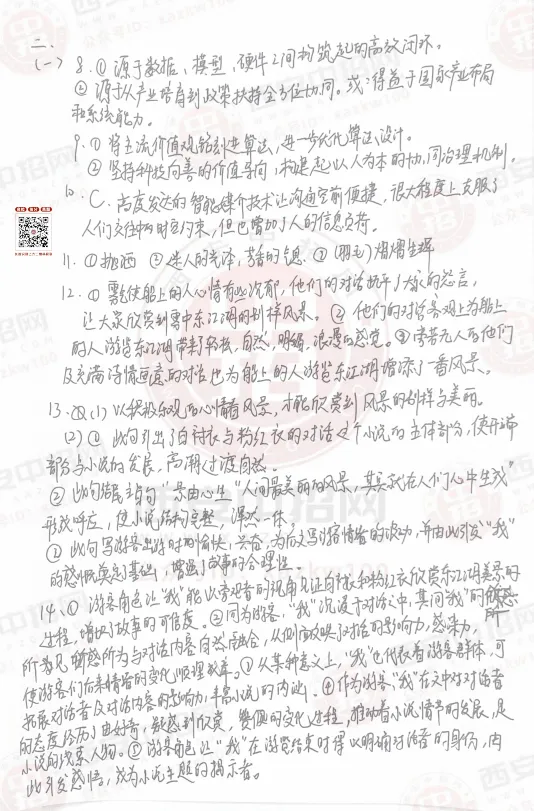 二、
(一) 8.① 源于数据、模型、硬件之间构筑起的高效闭环。
② 源于从产业培育到政策扶持全方位协同。或:得益于国家产业布局
和系统能力。
9.① 将主流价值观铭刻进算法,进一步优化算法设计。
② 坚持科技向善的价值导向,构建起以人为本的协同治理机制。
10. C. 高度发达的智能媒介技术让沟通空前便捷,很大程度上克服了
人们交往中的时空约束,但也增加了人的信息负荷。
11. ①抛洒 ②迷人的光泽,芳香的气息. ③(羽毛)熠熠生辉
12. ① 虽使船上的人心情有些沉郁,他们的对话抚平了大家的怨言,
让大家欣赏到雾中东江湖的别样风景。② 他们的对话客观上为船上
的人游览东江湖带来了轻松、自然、明媚、浪漫的感觉。③旁若无人的他们
及充满诗情画意的对话也为船上的人游览东江湖增添了一番风景。
13. (1) 以积极乐观的心情看风景,才能欣赏到风景的别样与美丽。
(2) ① 此句引出了白衬衣与粉红衣的对话这个小说的主体部分,使开端
部分与小说的发展、高潮过渡自然。
② 此句与结尾句“景由心生”“人间最美丽的风景,其实就在人们心中生成”
形成呼应,使小说结构完整,浑然一体。
③ 此句写游客出游时的愉快、兴奋,为后文写游客情绪的波动,并由此引发“我”
的感慨奠定基础,增强了故事的合理性。
14. ① 游客角色让“我”能以旁观者的视角见证白衬衣和粉红衣欣赏东江湖美景的
过程,增加了故事的可信度。②同为游客,“我”沉浸于对话之中,其间“我”的
所看见、所感所为与对话内容自然融合,从侧面映了对话的影响力、感染力,
使游客们后来情绪的变化顺理成章。③从某种意义上,“我”也代表着游客群体,可
拓展对话者及对话内容的影响力,丰富小说的内涵。④作为游客,“我”在文中对对话者
的态度经历了由好奇、疑惑到欣赏、的变化过程,推动着小说情节的发展,是
小说的线索人物。⑤游客角色让“我”在游览结束时得以明确对话者的身份,由
此引发感悟,成为小说主题的揭示者。